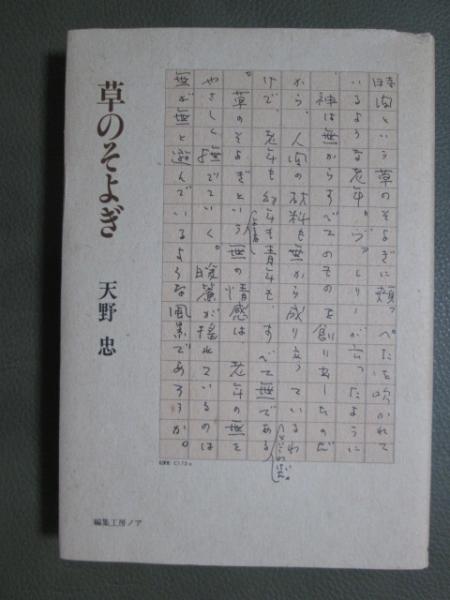 草のそよぎ
天野 忠
時間という草のそよぎに頬っぺたを吹かれて
いるような老年。ヴァレリーが云ったように
神は無からすべてのものを創り出したのだ
から、人間の材料も無から成り立っているわ
けで、老年も幼年も青年も、すべて無である
草のそよぎという無の情感は 老年の無を
やさしく撫でていく。睫毛が揺れているのは
無が無と遊んでいるような風景であろうか。
編集工房ノア